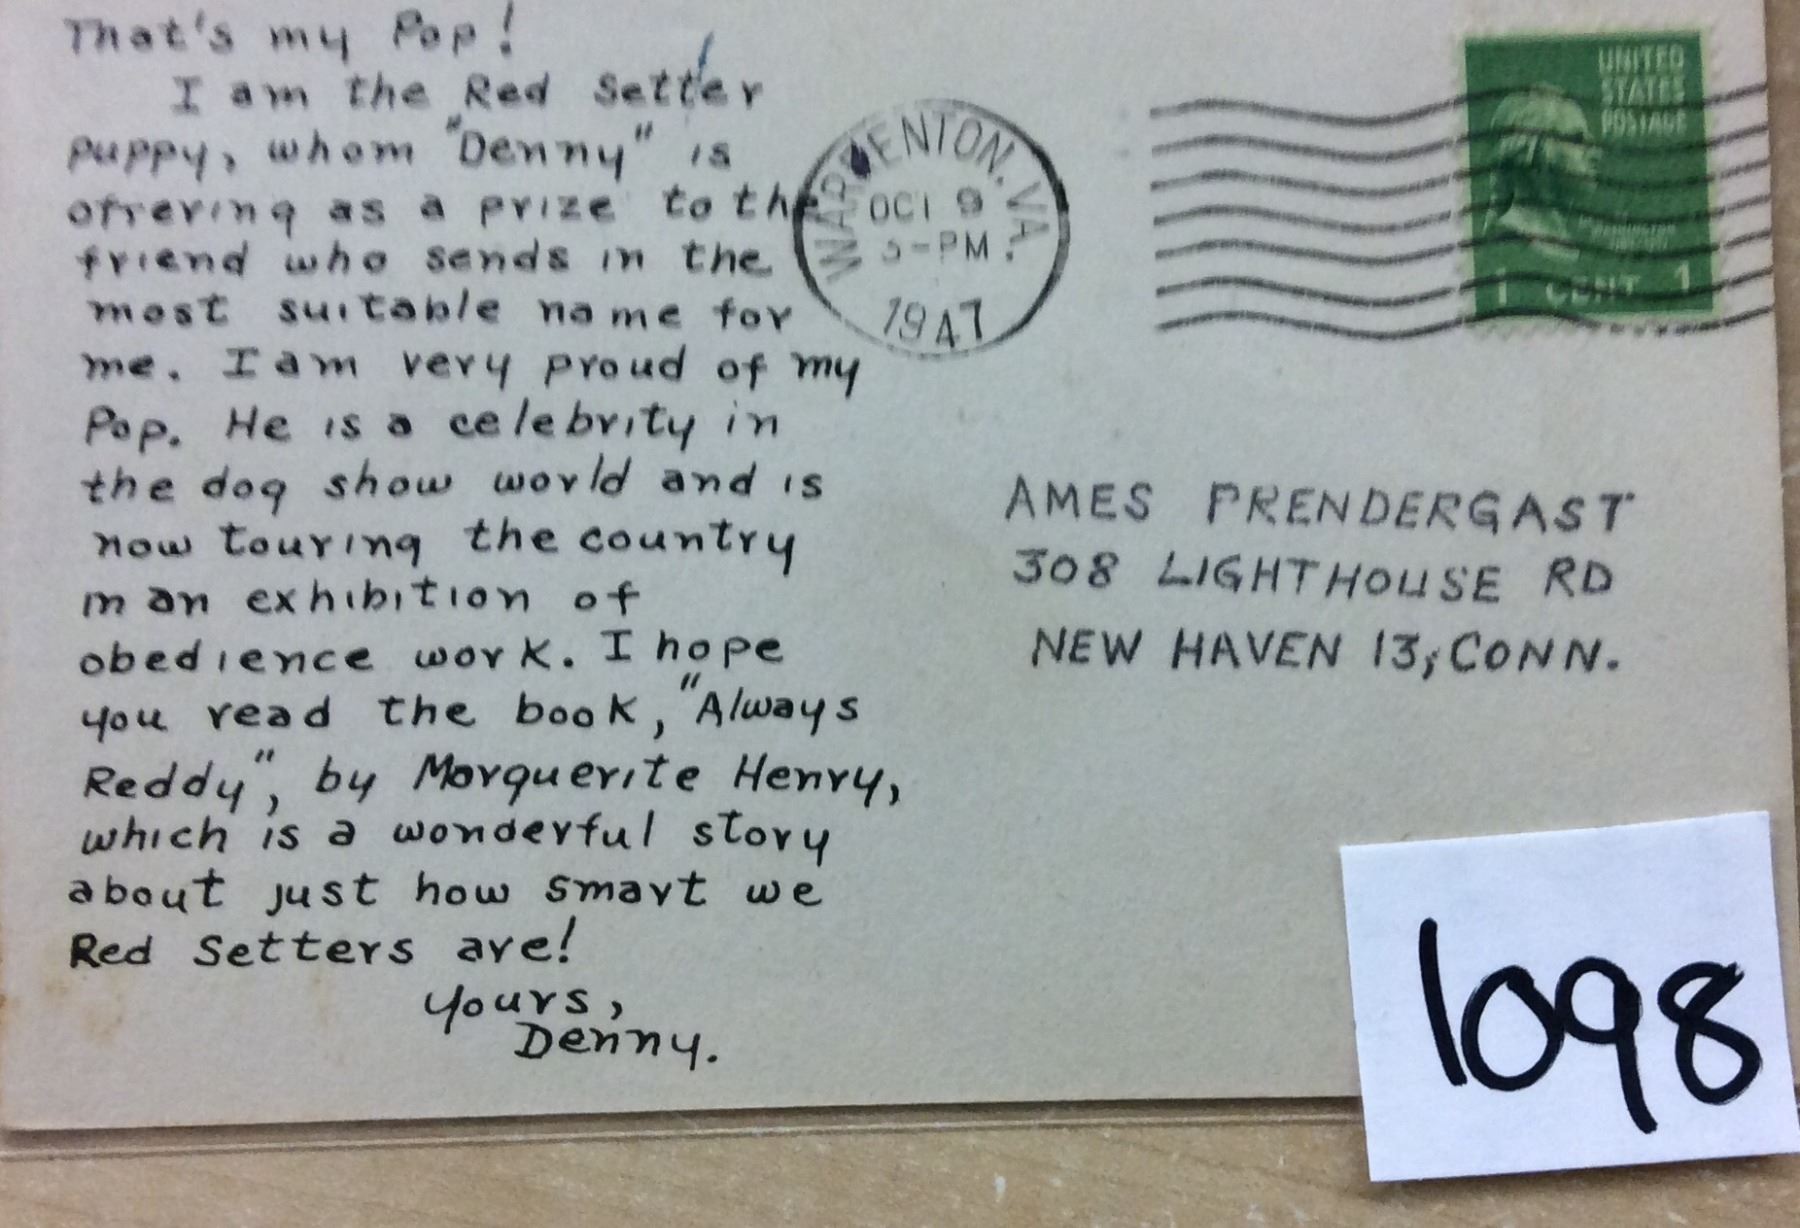 That's my Pop!
I am the Red Setter
puppy, whom "Denny" is
offering as a prize to the
friend who sends in the
most suitable name for
me. I am very proud of my
Pop. He is a celebrity in
the dog show world and is
now touring the country
in an exhibition of
obedience work. I hope
you read the book, "Always
Reddy", by Marguerite Henry,
which is a wonderful story
about just how smart we
Red Setters are!
Yours,
Denny.
WARRENTON, VA.
OCT 9
5-PM
1947
UNITED
STATES
POSTAGE
1 CENT 1
AMES PRENDERGAST
308 LIGHTHOUSE RD
NEW HAVEN 13, CONN.
1098